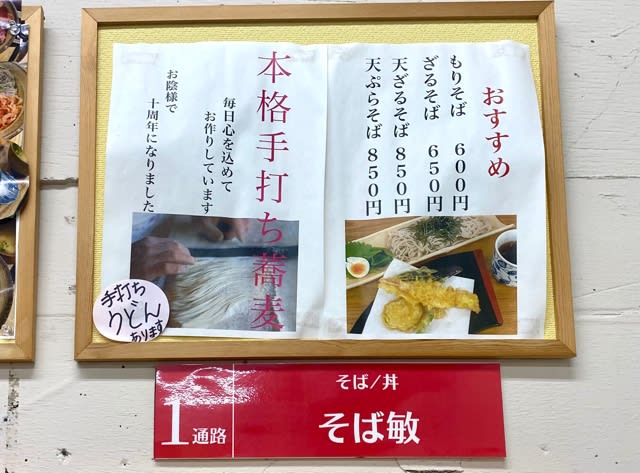 おすすめ
もりそば 600円
ざるそば 650円
天ざるそば 850円
天ぷらそば 850円
本格手打ち蕎麦
毎日心を込めて
お作りしています
お陰様で
十周年になりました
手打ち
うどん
あります
1通路
そば/丼
そば敏